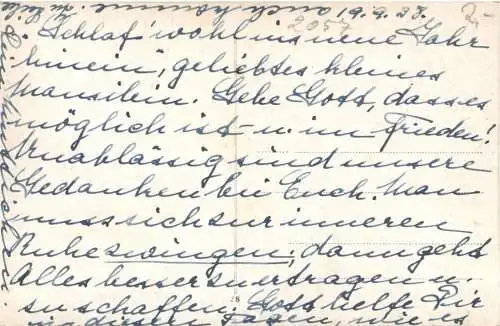 19.9.38.
"Schlaf' wohl ins neue Jahr
hinein", geliebtes kleines
Mausilein. Gebe Gott, dass es
möglich ist u. im Frieden!
Unablässig sind unsere
Gedanken bei Euch. Man
muss sich zur inneren
Ruhe zwingen, dann geht
Alles besser zu ertragen u.
zu schaffen. Gott helfe Dir
in diesen Tagen, wie es